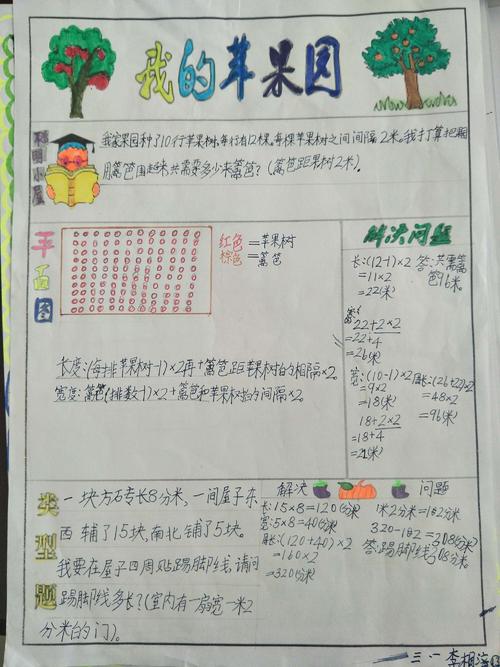 我的苹果园
聪明小屋
我家果园种了10行苹果树,每行有12棵,每棵苹果树之间间隔2米。我打算把期
用篱笆围起来,共需要多少米篱笆?(篱笆距果树2米)。
平面图
红色=苹果树
棕色=篱笆
长度:(每排苹果树-1)×2再+篱笆距苹果树的相隔×2。
宽度:篱笆(排数-1)×2+篱笆和苹果树的间隔×2。
解决问题
长:(12-1)×2
=11×2
=22(米)
22+2×2
=22+4
=26(米)
宽:(10-1)×2
=9×2
=18(米)
18+2×2
=18+4
=22(米)
周长:(26+22)×2
=48×2
=96(米)
答:共需篱
笆96米。
类型题
一块方石专长8分米,一间屋子东
西铺了15块,南北铺了5块。
我要在屋子四周贴踢脚线,请问
踢脚线多长?(室内有一扇宽一米2
分米的门)。
解决 问题
长:15×8=120(分米)
宽:5×8=40(分米)
周长:(120+40)×2
=160×2
=320(分米)
1米2分米=12分米
320-12=308(分米)
答:踢脚线308分米。
三·一 李相